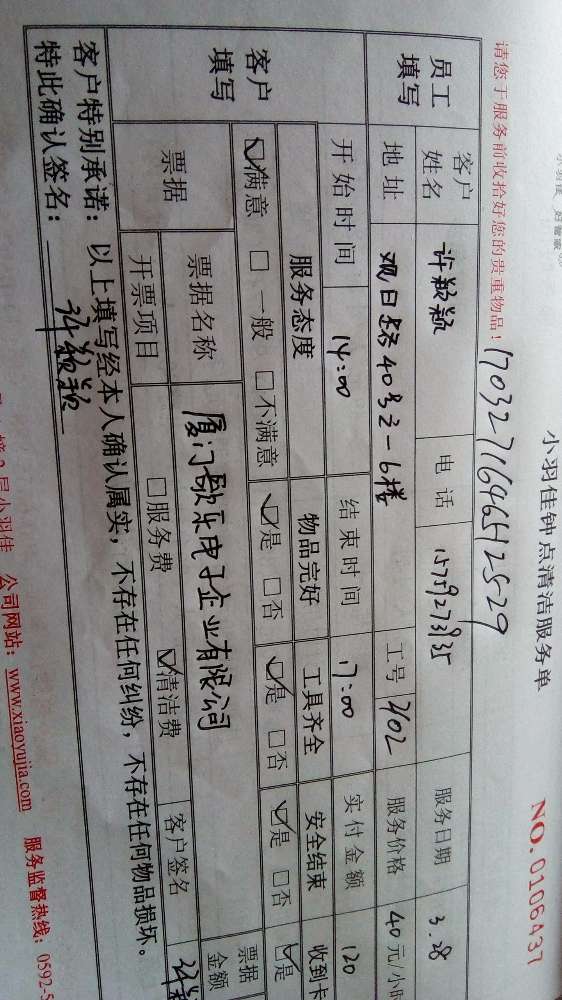 小羽佳钟点清洁服务单
NO.0106437
请您于服务前收拾好您的贵重物品！
17032711646512529
员工填写 客户姓名 许颖颖 电话 15759273935 服务日期 3.28
地址 观日路40号2-6楼 工号 2102 服务价格 40元/小时
客户填写 开始时间 14:00 结束时间 17:00 实付金额 120
服务态度 物品完好 工具齐全 安全结束 收到卡
☑满意 □一般 □不满意 ☑是 □否 ☑是 □否 ☑是 □否 ☑是
票据 票据名称 厦门歌乐电子企业有限公司 票据金额
开票项目 □服务费 ☑清洁费 客户签名
客户特别承诺：以上填写经本人确认属实，不存在任何纠纷，不存在任何物品损坏。
特此确认签名：许颖颖
公司网站：www.xiaoyujia.com 服务监督热线：0592-5